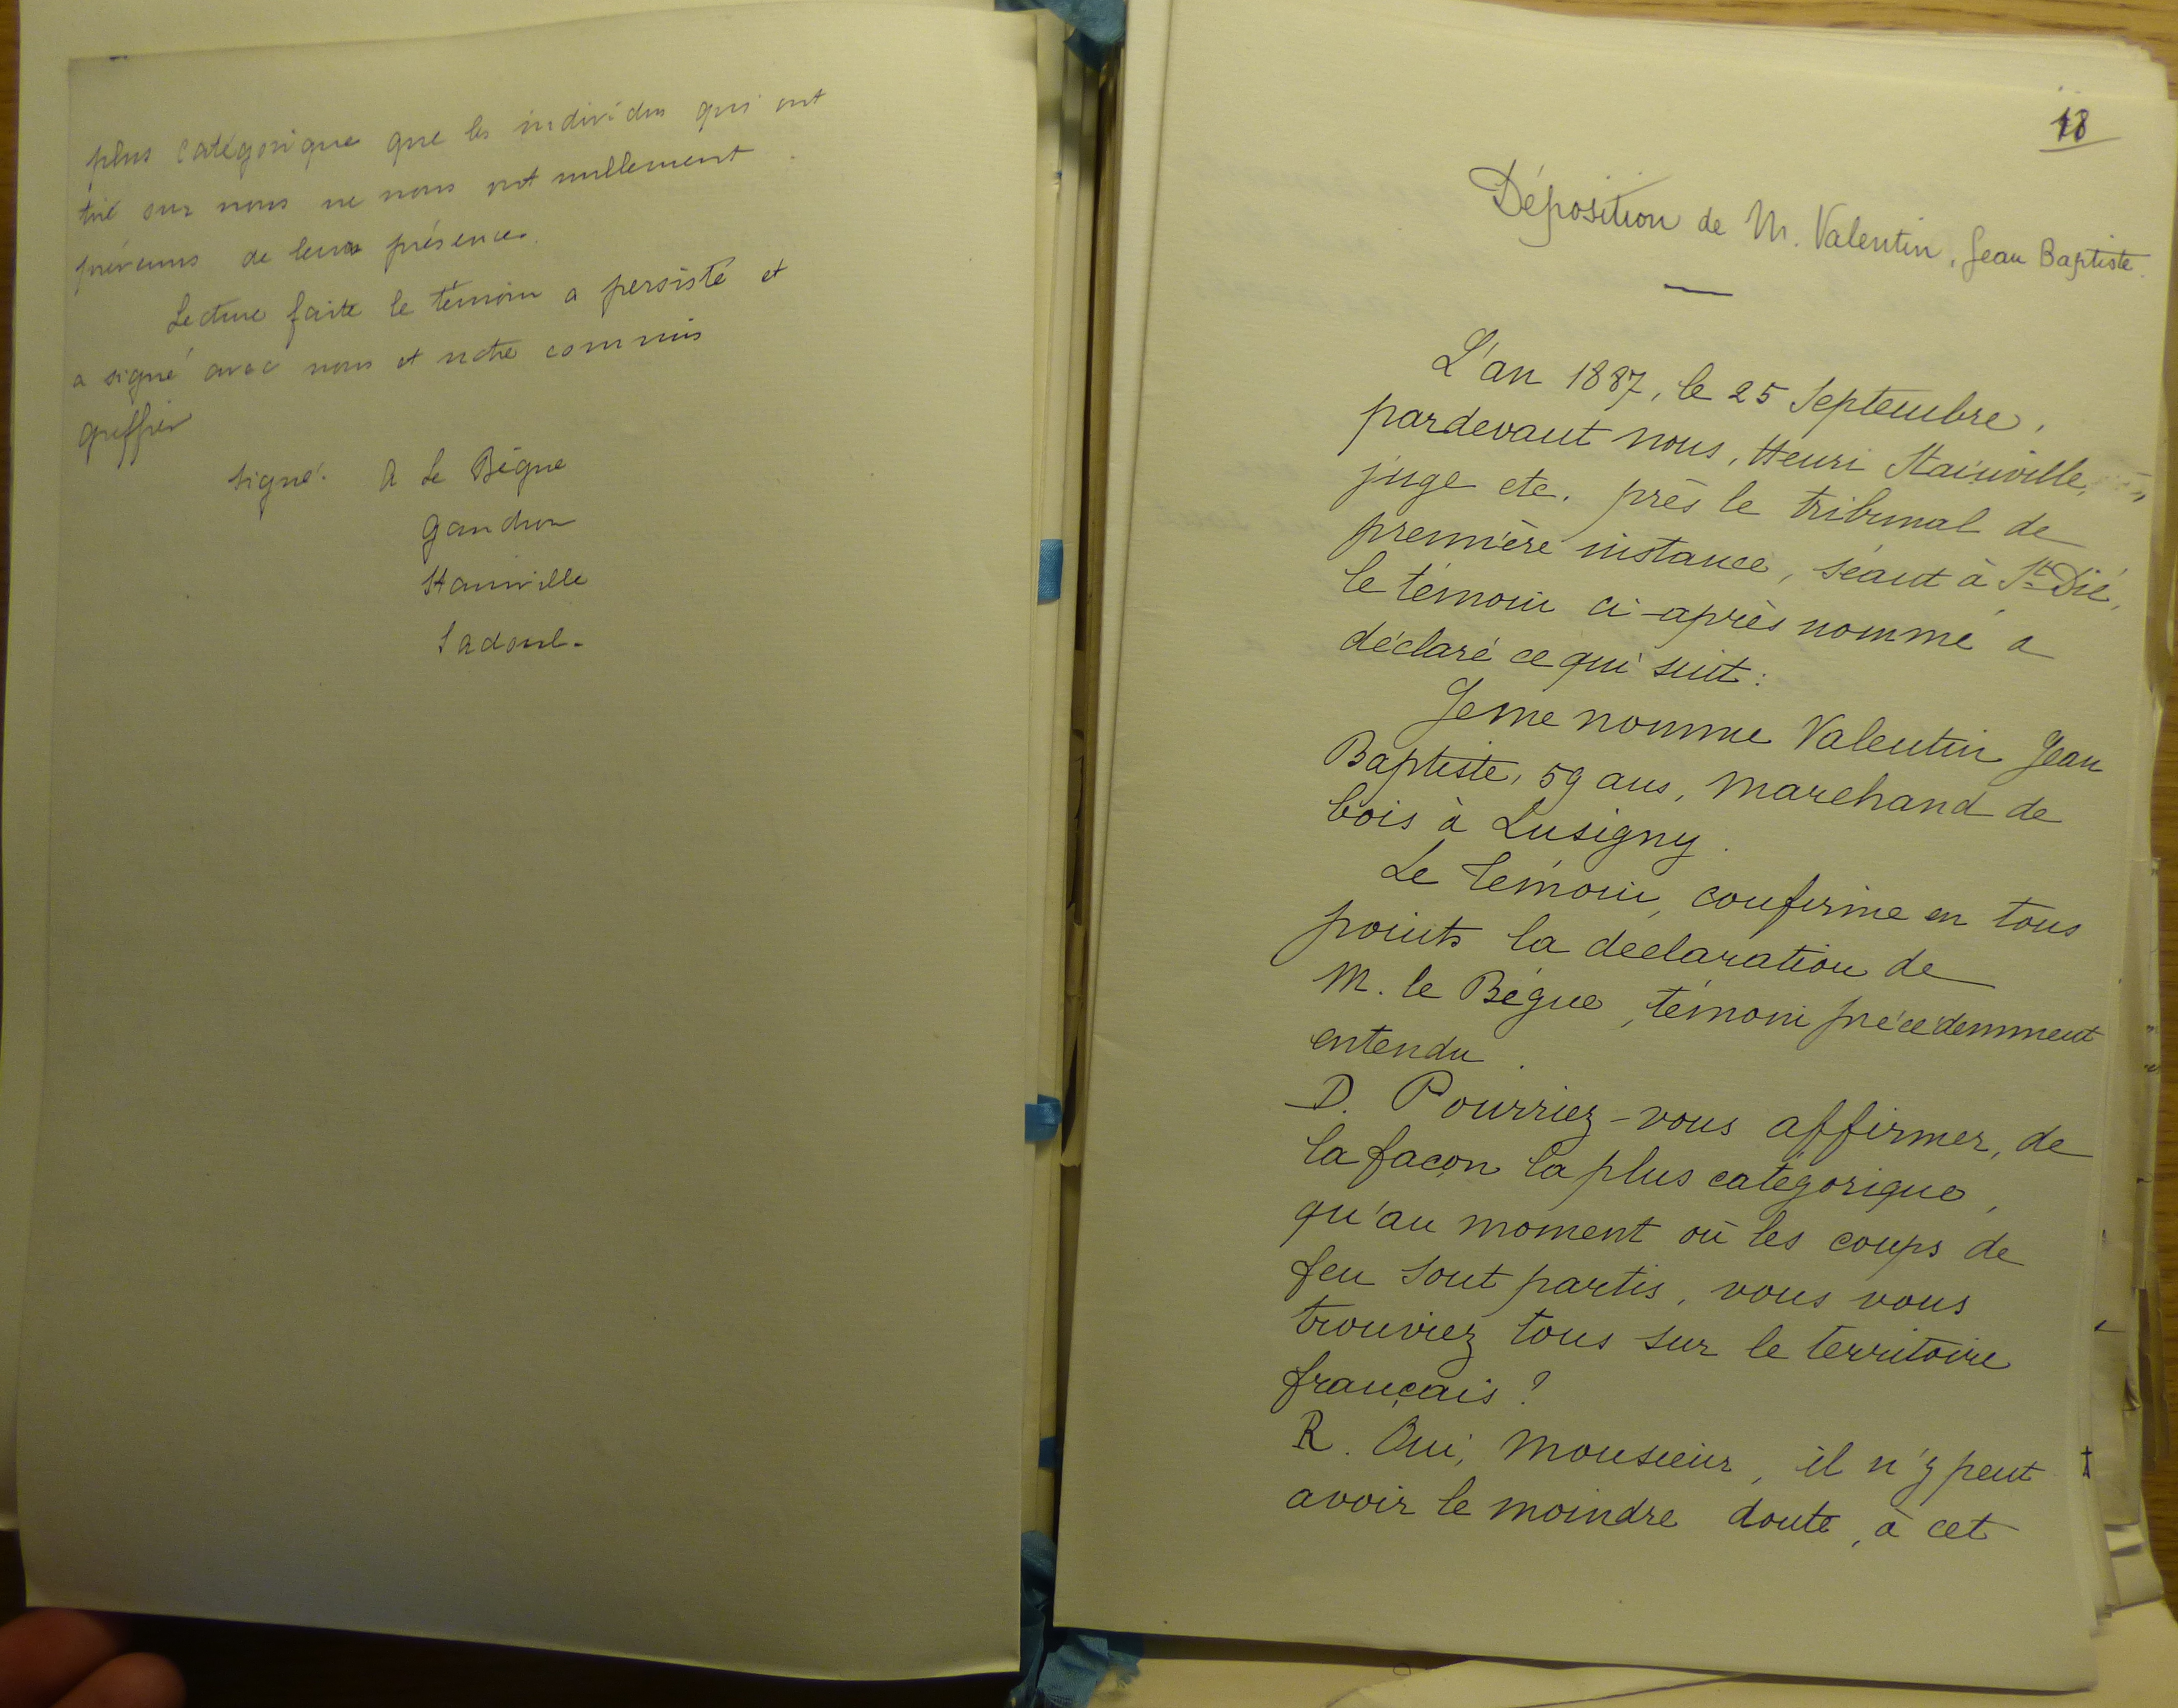 plus catégorique que les individus qui ont
tiré sur nous ne nous ont nullement
prévenus de leur présence.
Lecture faite le témoin a persisté et
a signé avec nous et notre commis
greffier
signé: A Le Bègue
Gandron
Stainville
Sadoul.
18
Déposition de M. Valentin, Jean Baptiste.
L'an 1887, le 25 Septembre,
pardevant nous, Henri Stainville,
juge etc. près le tribunal de
première instance, séant à St Dié,
le témoin ci-après nommé a
déclaré ce qui suit:
Je me nomme Valentin Jean
Baptiste, 59 ans, marchand de
bois à Lusigny.
Le témoin, confirme en tous
points la declaration de
M. le Bègue, témoin précédemment
entendu.
D. Pourriez-vous affirmer, de
la façon la plus catégorique,
qu'au moment où les coups de
feu sont partis, vous vous
trouviez tous sur le territoire
français?
R. Oui, Monsieur, il n'y peut
avoir le moindre doute, à cet